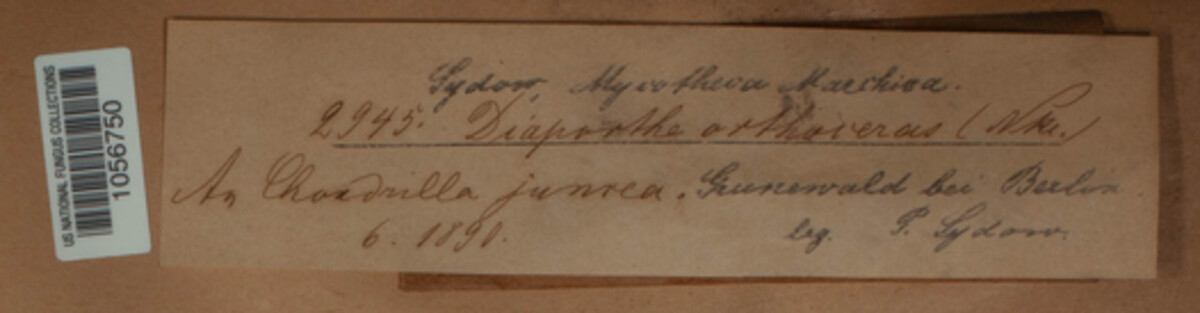 US NATIONAL FUNGUS COLLECTIONS
10567550
Sydow, Mycotheca Marchica.
2945. Diaporthe orthoceras (Nke.)
An Chondrilla juncea. Grunewald bei Berlin
6. 1890. leg. P. Sydow.